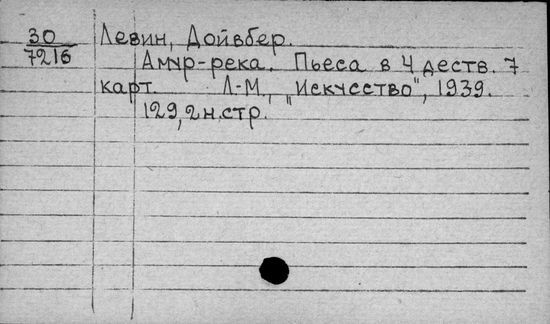 30 Левин, Дойвбер.
7216 Амур-река. Пьеса в 4 деств. 7
карт. Л-М., „Искусство", 1939.
129, 2 н. стр.